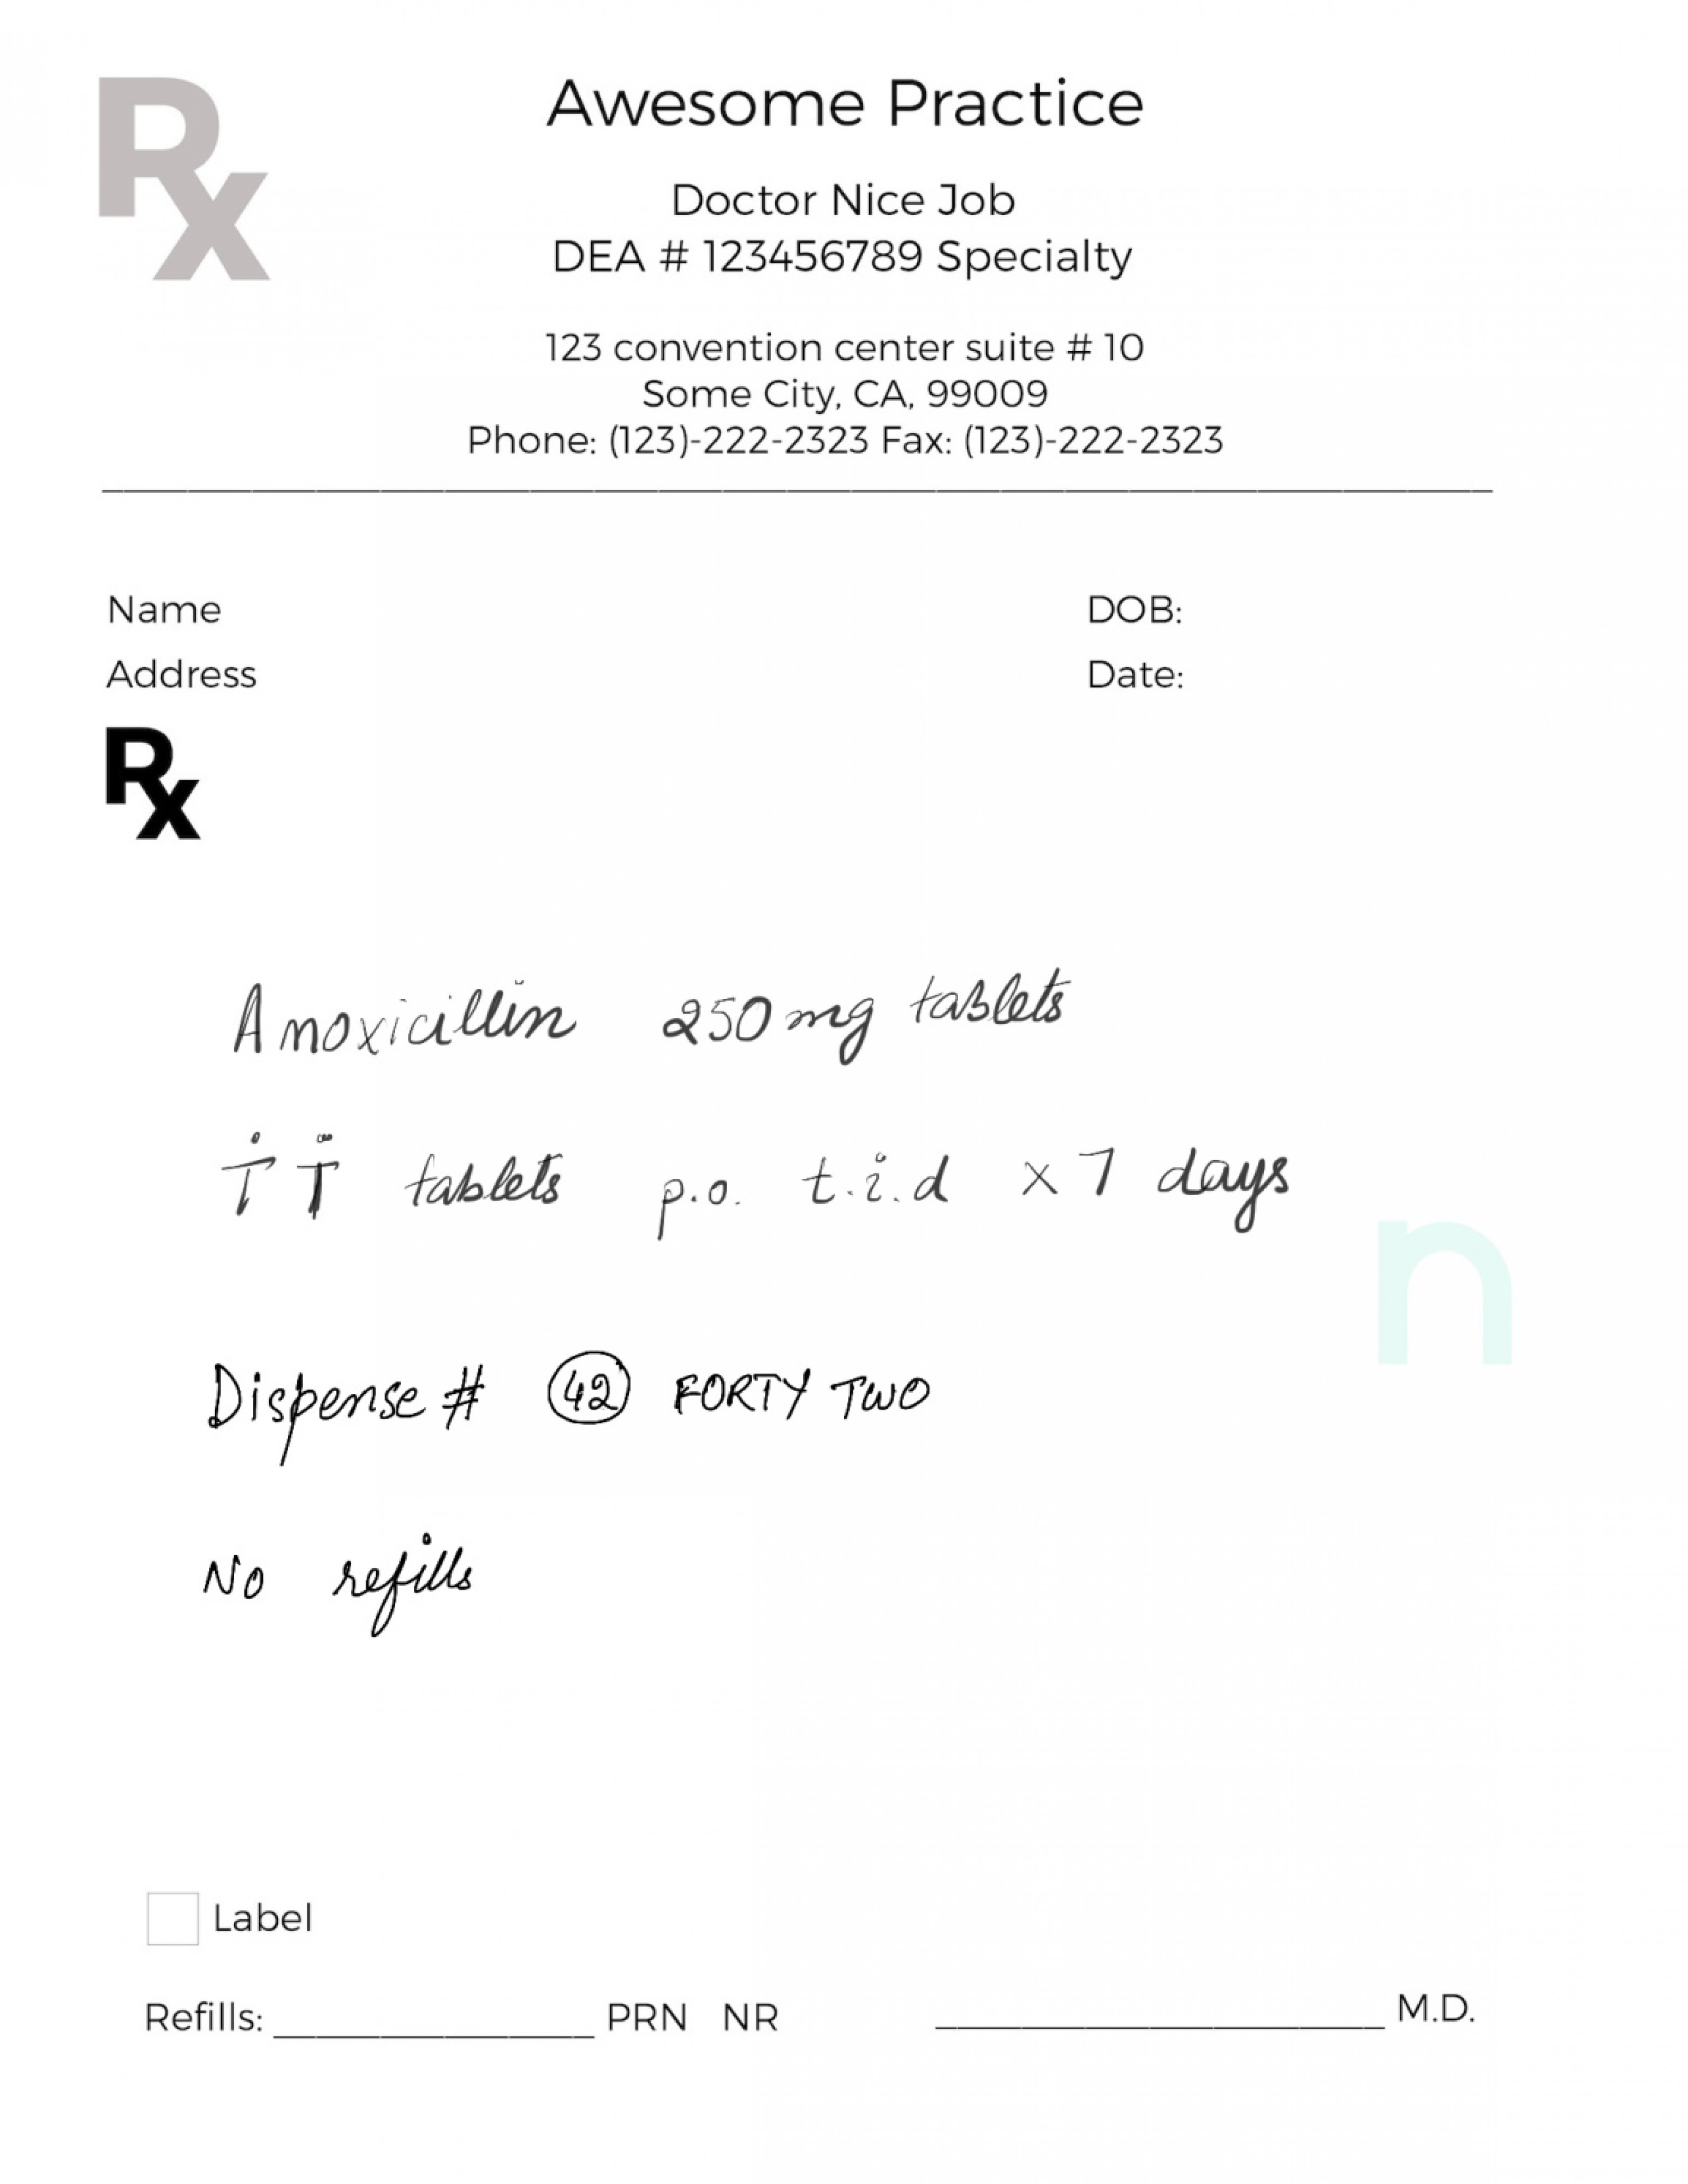 Rx
Awesome Practice
Doctor Nice Job
DEA # 123456789 Specialty
123 convention center suite # 10
Some City, CA, 99009
Phone: (123)-222-2323 Fax: (123)-222-2323
Name DOB:
Address Date:
Rx
Amoxicillin 250 mg tablets
TT tablets p.o. t.i.d x 7 days
Dispense # 42 FORTY TWO
n
No refills
Label
Refills: ____ PRN NR ____ M.D.